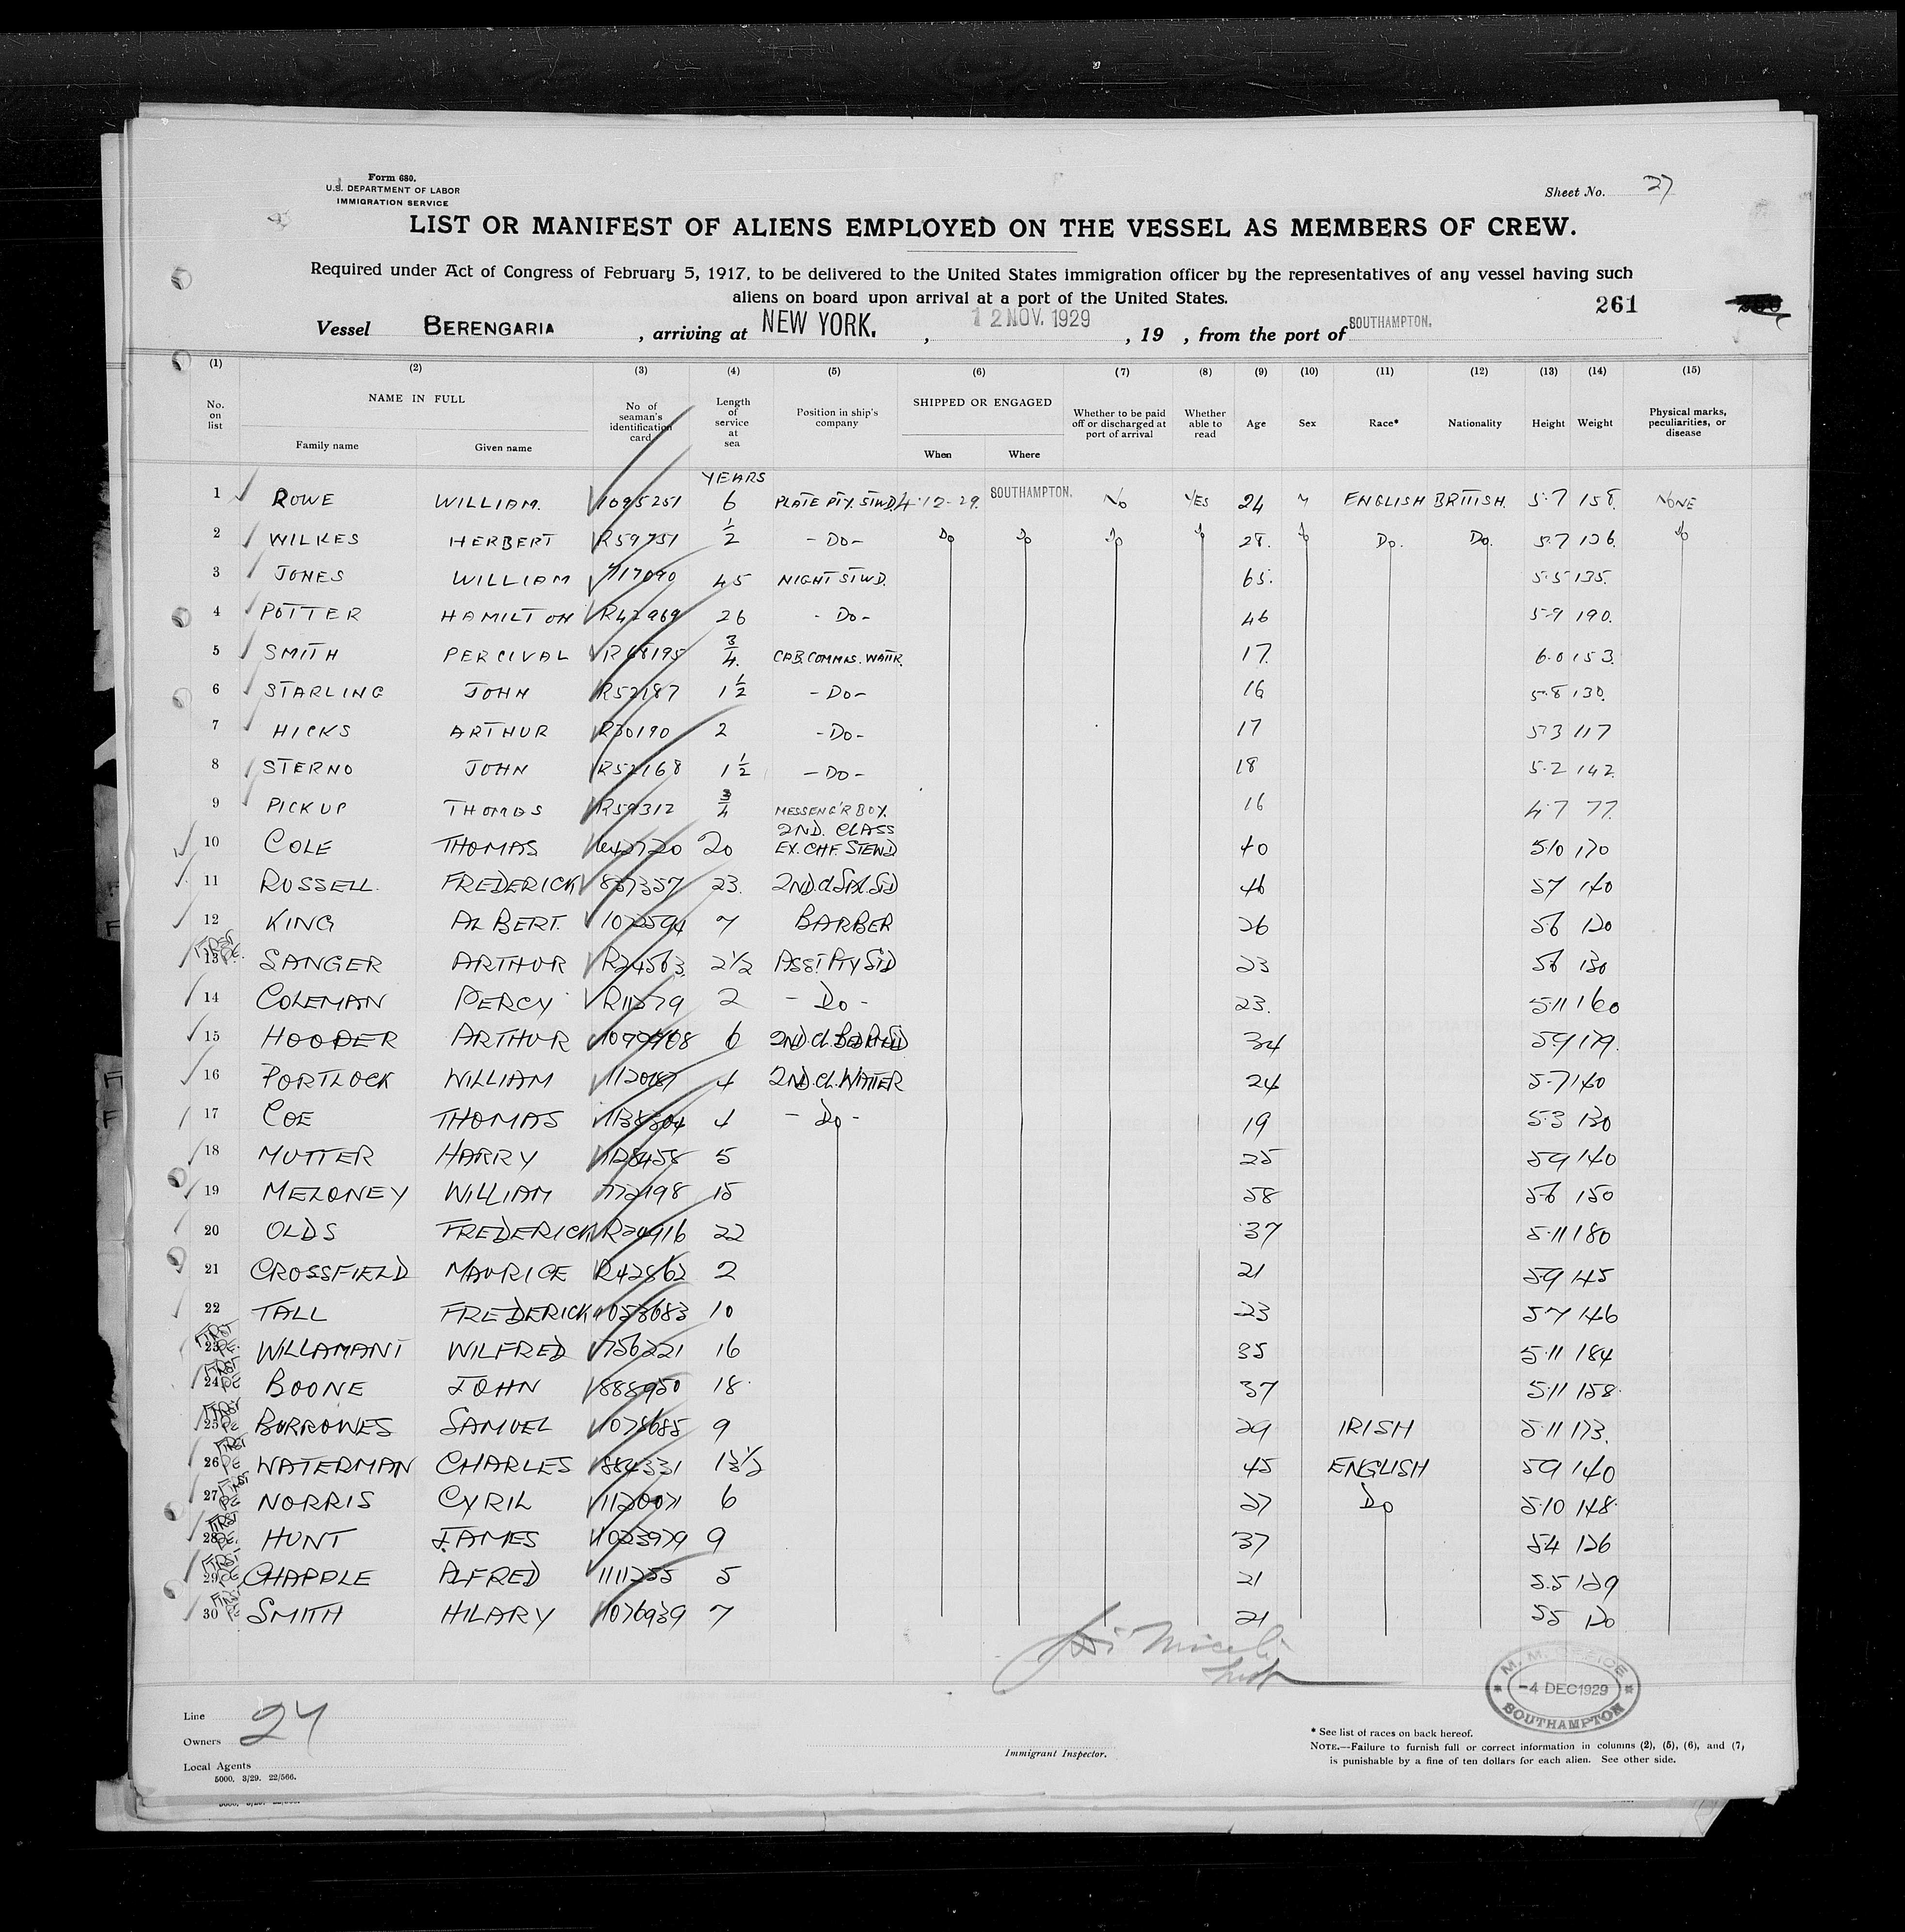 Form 680.
U.S. DEPARTMENT OF LABOR
IMMIGRATION SERVICE
Sheet No. 27
LIST OR MANIFEST OF ALIENS EMPLOYED ON THE VESSEL AS MEMBERS OF CREW.
Required under Act of Congress of February 5, 1917, to be delivered to the United States immigration officer by the representatives of any vessel having such
aliens on board upon arrival at a port of the United States.
261
Vessel BERENGARIA , arriving at NEW YORK. , 12 NOV. 1929 , 19 , from the port of SOUTHAMPTON.
(1) (2) (3) (4) (5) (6) (7) (8) (9) (10) (11) (12) (13) (14) (15)
No. on list NAME IN FULL Family name Given name No of seaman's identification card Length of service at sea Position in ship's company SHIPPED OR ENGAGED When Where Whether to be paid off or discharged at port of arrival Whether able to read Age Sex Race* Nationality Height Weight Physical marks, peculiarities, or disease
YEARS
1 ROWE WILLIAM. 1095251 6 PLATE PTY. STWD. 4-12-29. SOUTHAMPTON. NO YES 24 M ENGLISH BRITISH. 5.7 158. NONE
2 WILKES HERBERT R59751 1/2 - DO - DO DO DO DO 28. DO DO. DO. 5.7 136. DO
3 JONES WILLIAM 717090 45 NIGHT STWD. 65. 5.5 135.
4 POTTER HAMILTON R42969 26 - DO - 46 5.9 190.
5 SMITH PERCIVAL R68195 3/4. CAB. COMMAS. WAITR. 17. 6.0 153.
6 STARLING JOHN R52187 1 1/2 - DO - 16 5.8 130.
7 HICKS ARTHUR R30190 2 - DO - 17 5.3 117
8 STERNO JOHN R52168 1 1/2 - DO - 18 5.2 142.
9 PICKUP THOMAS R59312 3/4 MESSENG'R BOY. 16 4.7 77.
2ND. CLASS
10 COLE THOMAS 642720 20 EX. CHF. STEWD 40 5.10 170
11 RUSSELL. FREDERICK 837357 23. 46 5.7 140
12 KING ALBERT. 1072594 7 BARBER 26 5.6 120
13 SANGER ARTHUR R24563 2 1/2 ASST PTY STD 23 5.6 130
14 COLEMAN PERCY R11279 2 - DO - 23. 5.11 160
15 HOODER ARTHUR 6 34 5.9 179.
16 PORTLOCK WILLIAM 1120187 4 2ND. CL. WAITER 24 5.7 140
17 COE THOMAS 1138304 4 - DO - 19 5.3 130
18 MUTTER HARRY 1128458 5 25 5.9 140
19 MELONEY WILLIAM 772198 15 58 5.6 150
20 OLDS FREDERICK R20916 22 37 5.11 180
21 CROSSFIELD MAURICE R42862 2 21 5.9 145
22 TALL FREDERICK 1053683 10 23 5.7 146
23 WILLAMANT WILFRED 756221 16 35 5.11 184
24 BOONE JOHN 888950 18. 37 5.11 158.
25 BURROWES SAMUEL 1078685 9 29 IRISH 5.11 173.
26 WATERMAN CHARLES 884331 13 1/2 45 ENGLISH 5.9 140
27 NORRIS CYRIL 1120071 6 27 DO 5.10 148.
28 HUNT JAMES 1023979 9 37 5.4 126
29 CHAPPLE ALFRED 1111255 5 21 5.5 129
30 SMITH HILARY 1076939 7 21 5.5 120
M. M. OFFICE
-4 DEC 1929
SOUTHAMPTON
Line
24
Owners
Local Agents
5000. 3/29. 22/566.
Immigrant Inspector.
* See list of races on back hereof.
NOTE.—Failure to furnish full or correct information in columns (2), (5), (6), and (7)
is punishable by a fine of ten dollars for each alien. See other side.